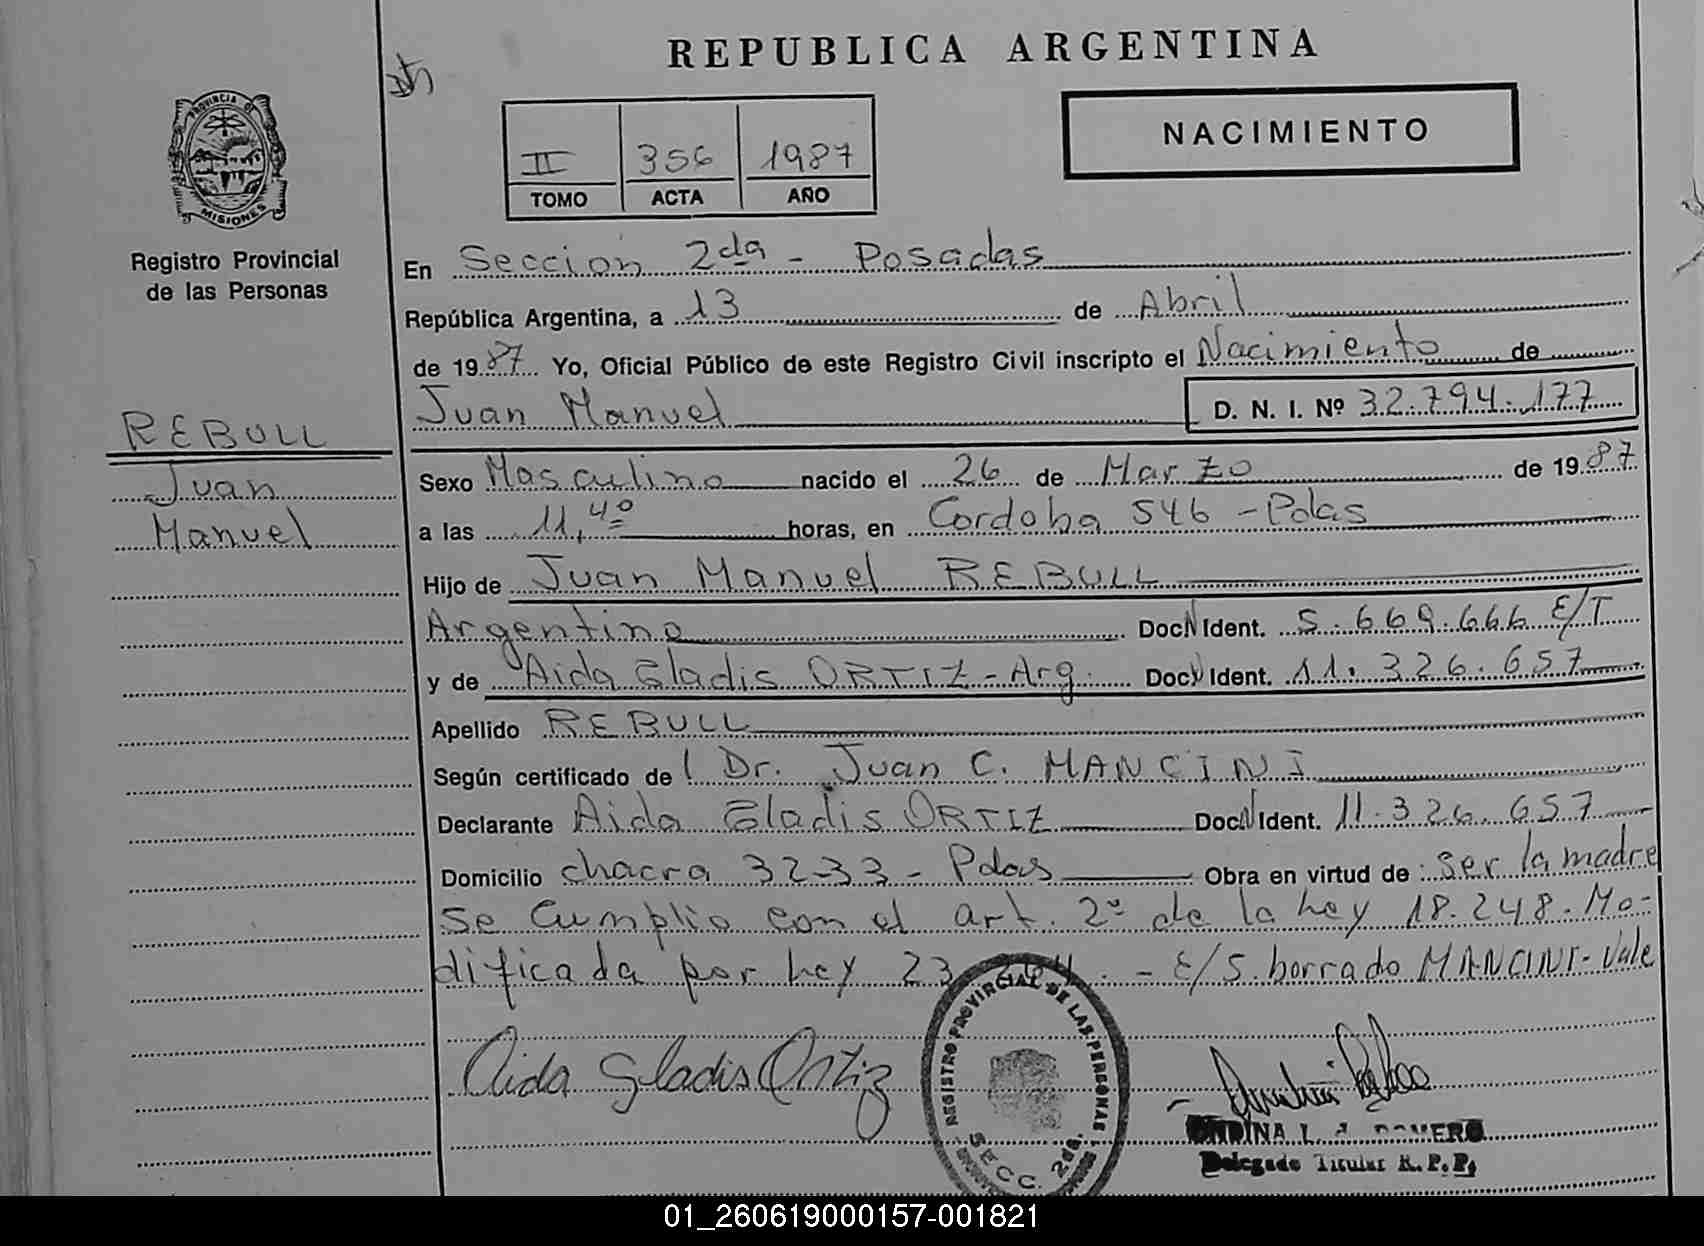 REPUBLICA ARGENTINA
PROVINCIA DE
MISIONES
Registro Provincial
de las Personas
NACIMIENTO
II 356 1987
TOMO ACTA AÑO
En Sección 2da - Posadas
República Argentina, a 13 de Abril
de 1987 Yo, Oficial Público de este Registro Civil inscripto el Nacimiento de
Juan Manuel D. N. I. Nº 32.794.177
REBULL
Juan
Manuel
Sexo Masculino nacido el 26 de Marzo de 1987
a las 11,40 horas, en Cordoba 546 - Pdas
Hijo de Juan Manuel REBULL
Argentino Doc. Ident. 5.669.666 E/T
y de Aida Gladis ORTIZ - Arg. Doc. Ident. 11.326.657
Apellido REBULL
Según certificado de Dr. Juan C. MANCINI
Declarante Aida Gladis ORTIZ Doc. Ident. 11.326.657
Domicilio chacra 32-33 - Pdas Obra en virtud de : Ser la madre
Se Cumplio con el art. 2º de la Ley 18.248. Mo-
dificada por Ley 23 - E/S. borrado MANCINI - Vale
Aida Gladis Ortiz
REGISTRO PROVINCIAL DE LAS PERSONAS
SECC. 2da.
ROMERO
Delegado Titular R. P. P.
01_260619000157-001821